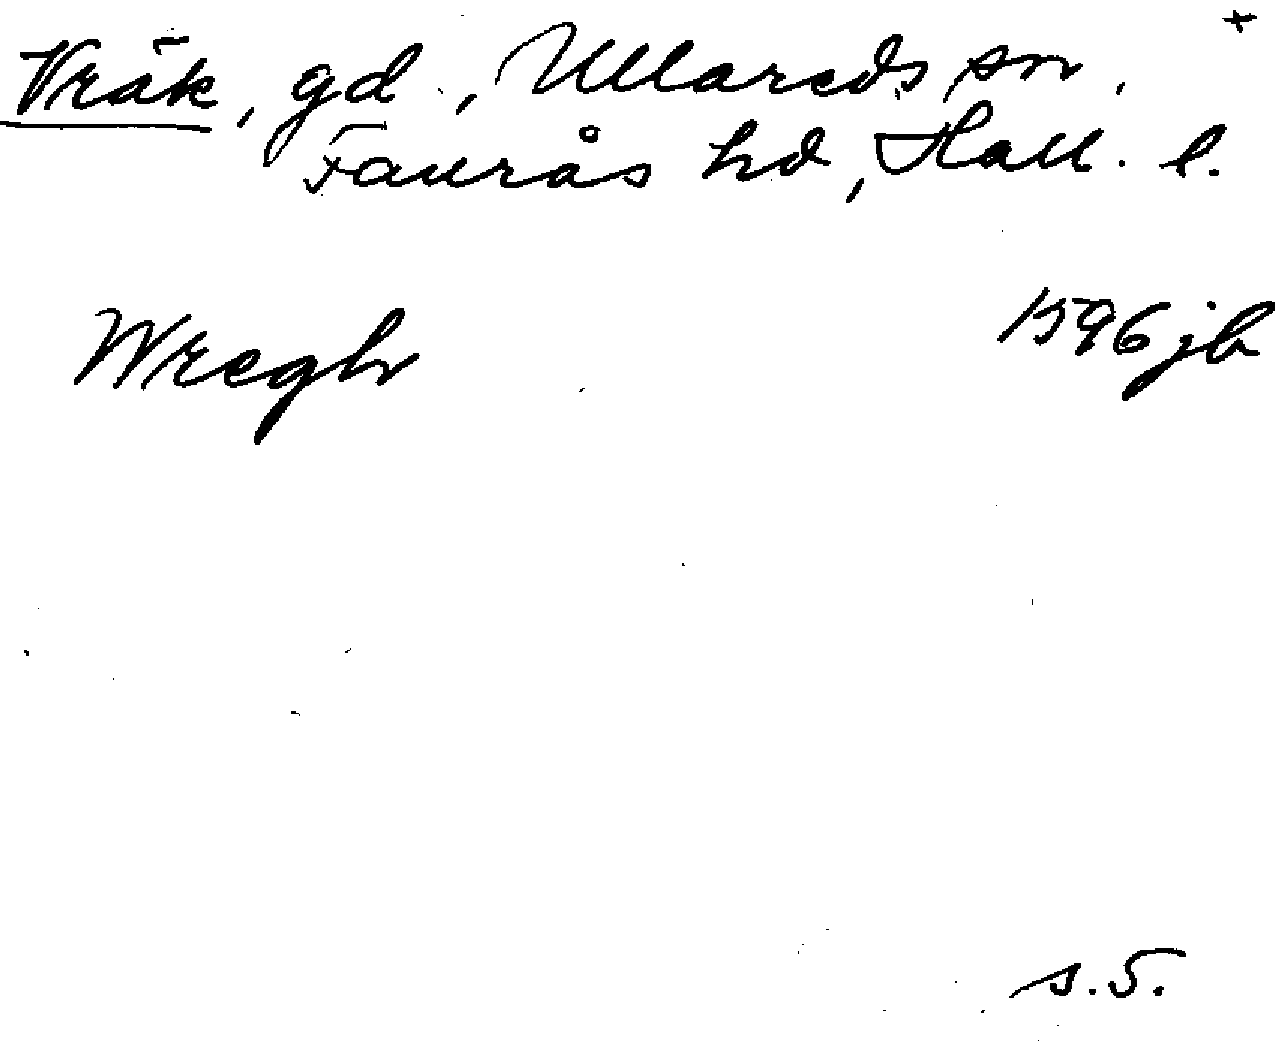 Vräk, gd., Ullareds sn,
Faurås hd, Hall. l.
Wregh 1596 jb
s.5.